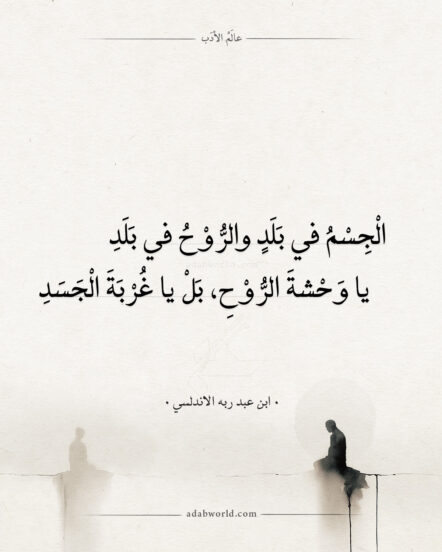 عالَمُ الأدَب
الْجِسْمُ في بَلَدٍ والرُّوْحُ في بَلَدِ
يا وَحْشةَ الرُّوْحِ، بَلْ يا غُرْبَةَ الْجَسَدِ
• ابن عبد ربه الاندلسي •
adabworld.com